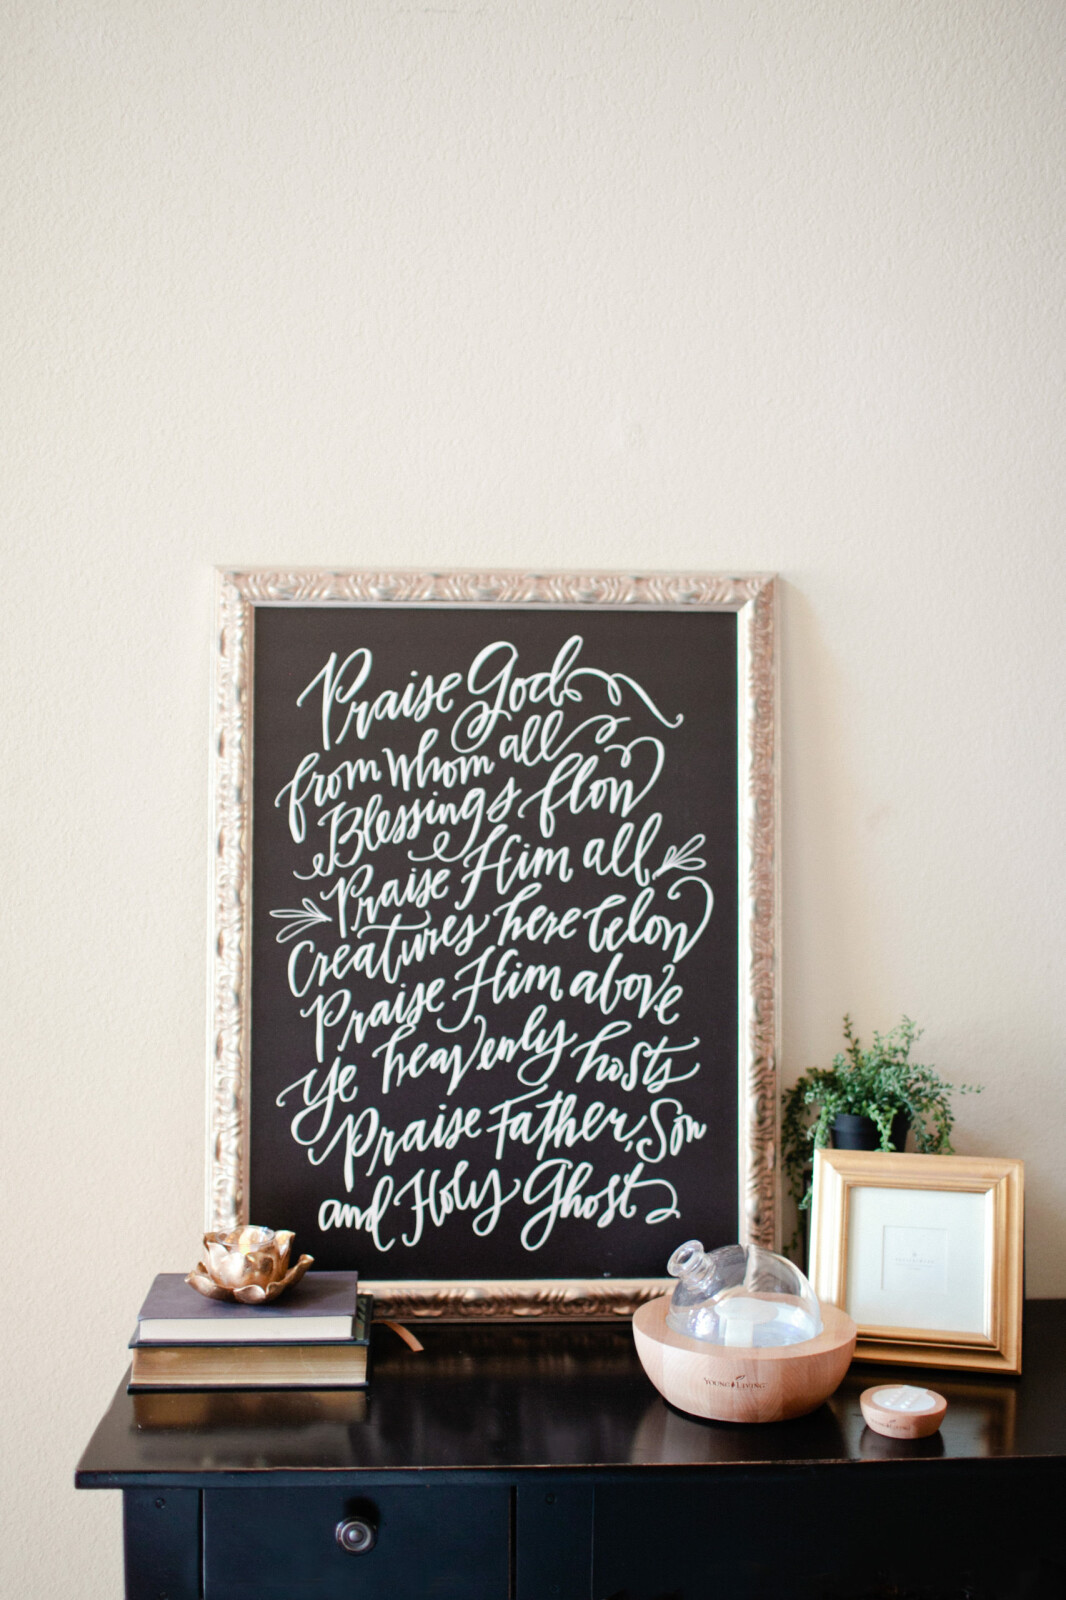 Praise God
from whom all
Blessings flow
Praise Him all
Creatures here below
Praise Him above
Ye heavenly hosts
Praise Father, Son
and Holy Ghost
YOUNG LIVING
YOUNG LIVING